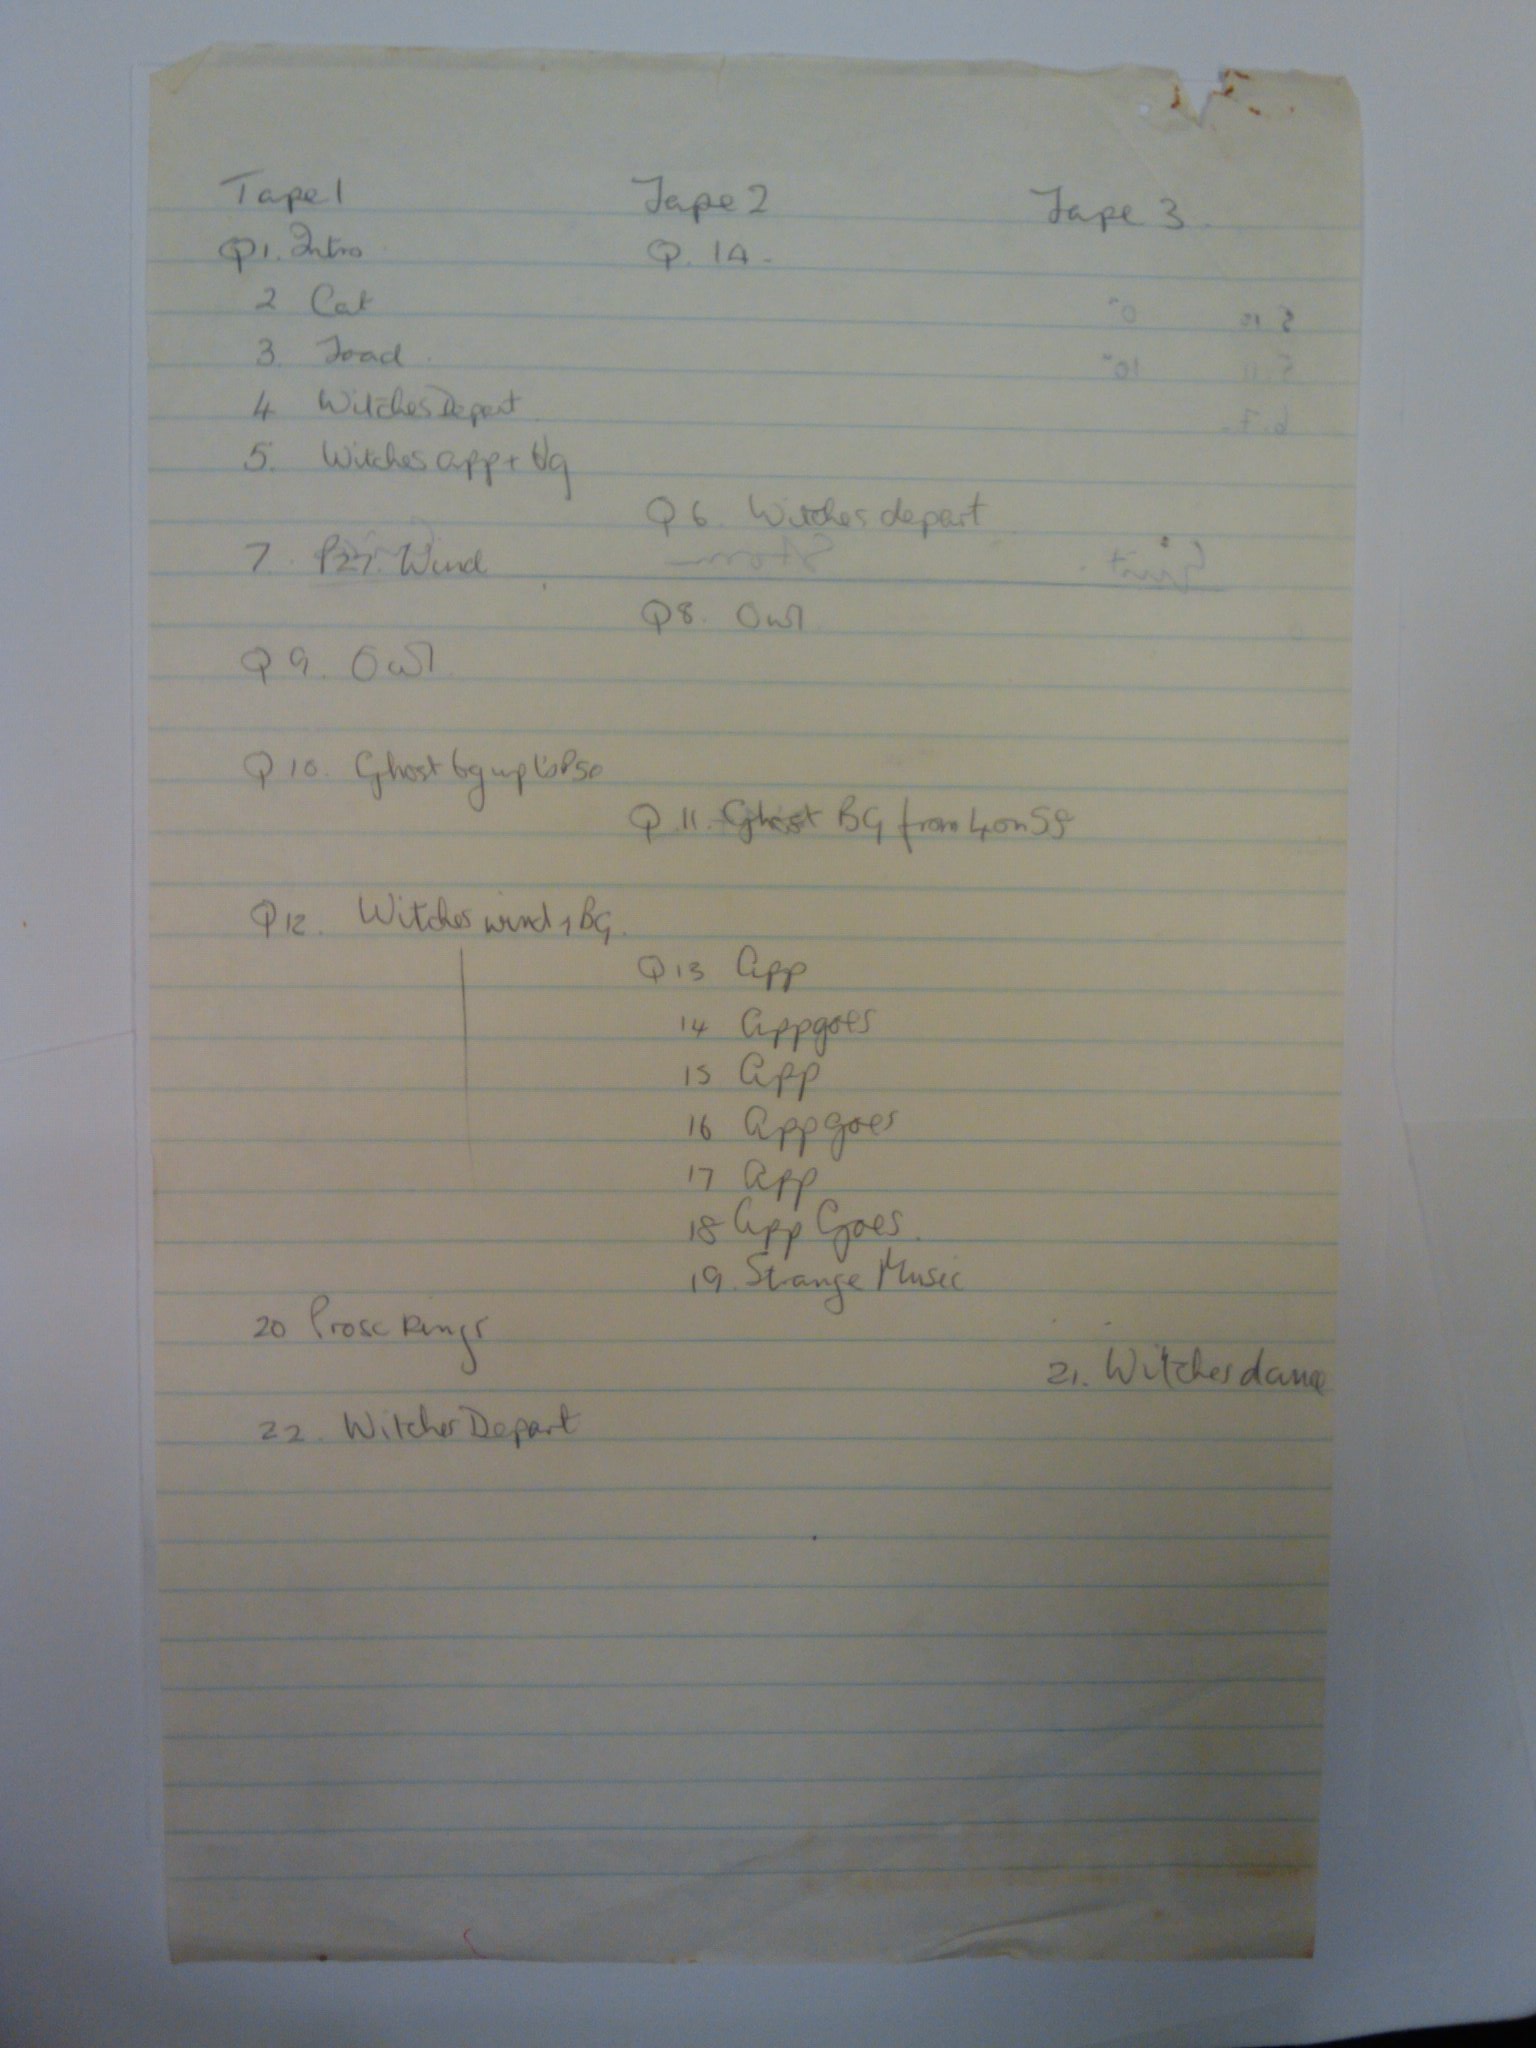 Tape 1 Tape 2 Tape 3
Q1. Intro Q. 1A.
2 Cat
3. Toad.
4 Witches Depart
5. Witches app + bg
Q6. Witches depart
7. P27. Wind
Q8. Owl
Q9. Owl
Q10. Ghost bg up to P50
Q.11. Ghost BG from 4 on 59
Q12. Witches wind + BG.
Q13 App
14 App goes
15 App
16 App goes
17 App
18 App Goes.
19. Strange Music
20 Prosc Kings
21. Witches dance
22. Witches Depart